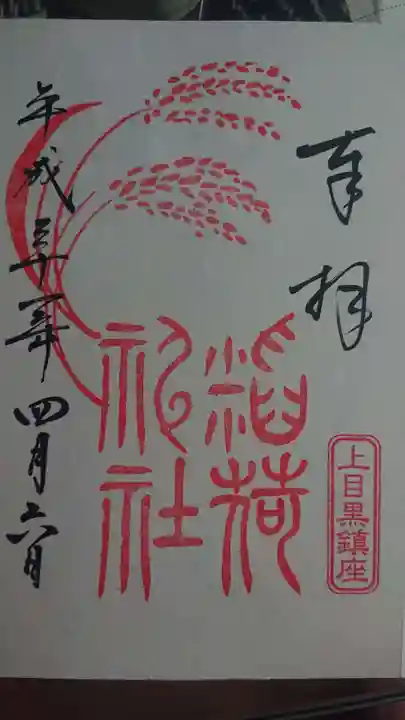 奉拝
上目黒鎮座
稲荷
神社
平成三十一年四月六日